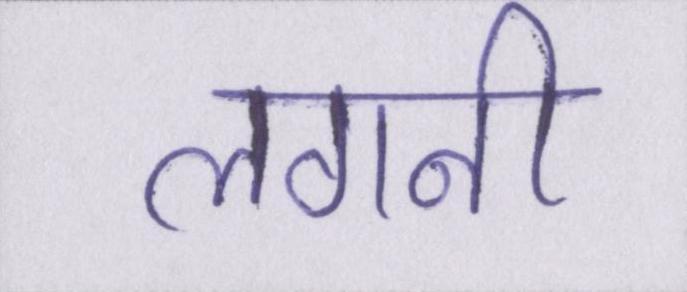 लगनी